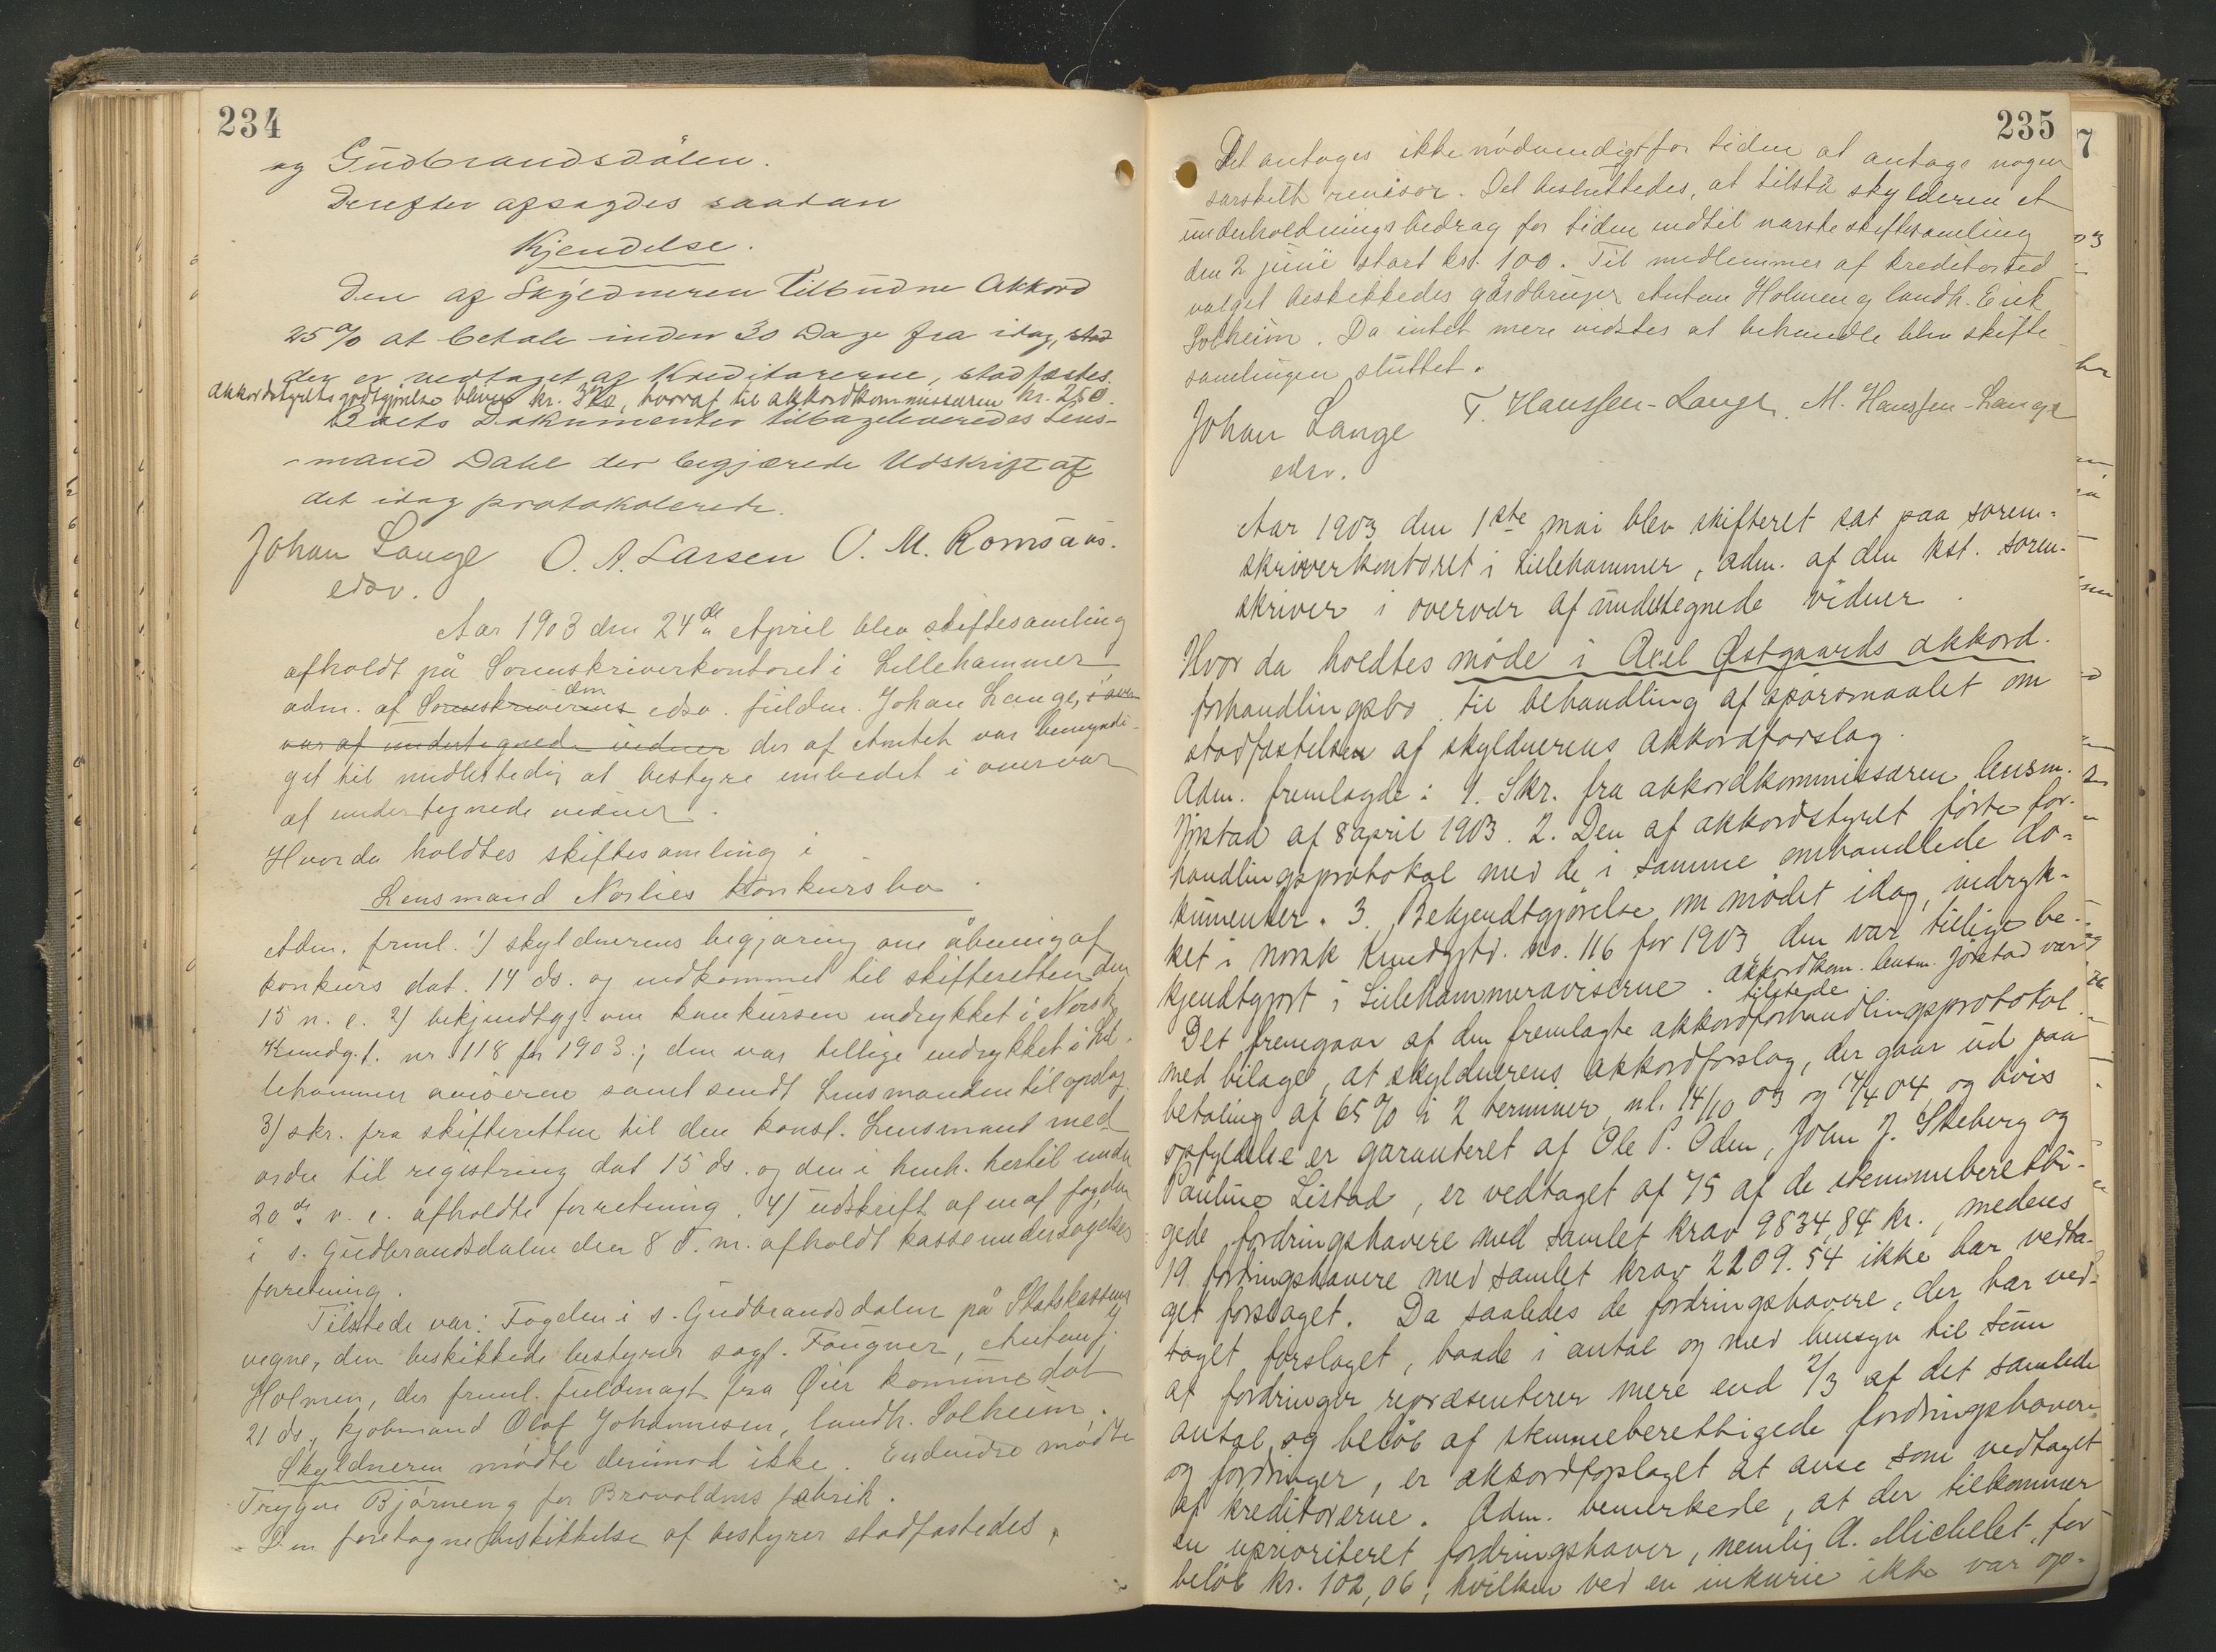 234
og Gudbrandsdålen.
Derefter afsagdes saadan
Kjendelse.
Den af Skyldneren Tilbudne Akkord
25% at betale inden 30 Dage fra idag, stad
der er vedtaget af Kreditorerne, stadfæstes.
Akkordstyrets godtgjørelse blever kr. 320, hvoraf til akkordkommissæren kr. 250.
Boets Dokumenter tilbageleveredes Lens-
mand Dahl der begjærede Udskrift af
det idag protokolerede.
Johan Lange O. A. Larsen O. M. Romsaas.
edsv.
Aar 1903 den 24de April blev skiftesamling
afholdt på Sorenskriverkontoret i Lillehammer,
adm. af Sorenskriverens den edsv. fuldm. Johan Lange, i over
vær af undertegnede vidner der af Amtet var bemyndi-
get til midlertidig at bestyre embedet i overvær
af undertegnede vidner.
Hvor da holdtes skiftesamling i
Lensmand Norlies konkursbo.
Adm. freml. 1) skyldnerens begjæring om åbning af
konkurs dat. 14 ds. og indkommet til skifteretten den
15 n. e. 2) bekjendtgj. om konkursen indrykket i Norsk
Kundg.t. nr. 118 for 1903; den var tillige indrykket i Lil-
lehammer aviserne samt sendt Lensmanden til opslag.
3) skr. fra skifteretten til den konst. Lensmand med
ordre til registring dat 15 ds. og den i henh. hertil under
20de n. e. afholdte forretning. 4) udskrift af en af fogden
i s. Gudbrandsdalen den 8 d. m. afholdt kasseundersøgelses
forretning.
Tilstede var: Fogden i s. Gudbrandsdalen på Statskassens
vegne, den beskikkede bestyrer sagf. Fougner, Anton
Holmen, der freml. fuldmagt fra Øier kommune dat
21 ds., kjøbmand Olaf Johannesen, landh. Solheim.
Skyldneren mødte derimod ikke. Endvidre mødte
Trygve Bjørneng for Bravoldens fabrik.
Den foretagne beskikkelse af bestyrer stadfæstedes.
235
Det antages ikke nødvendigt for tiden at antage nogen
særskilt revisor. Det besluttedes, at tilstå skylderen et
underholdningsbedrag for tiden indtil næste skiftesamling
den 2 juni stort kr. 100. Til medlemmer af kreditorud
valget beskikkedes gårdbruger Anton Holmen og landh. Erik
Solheim. Da intet mere vidstes at behandle blev skifte
samlingen sluttet.
Johan Lange T. Hanssen-Lange M. Hanssen-Lange
edsv.
Aar 1903 den 1ste mai blev skifteret sat paa soren-
skriverkontoret i Lillehammer, adm. af den kst. soren-
skriver i overvær af undertegnede vidner.
Hvor da holdtes møde i Axel Østgaards akkord-
forhandlingsbo til behandling af spørsmaalet om
stadfæstelsen af skyldnerens akkordforslag.
Adm. fremlagde: 1. Skr. fra akkordkommissæren lensm.
Jørstad af 8 april 1903. 2. Den af akkordstyret førte for-
handlingsprotokol med de i samme omhandlede do-
kumenter. 3. Bekjendtgjørelse om mødet idag, indryk-
ket i norsk Kundgjtd. no. 116 for 1903 den var tillige be-
kjendtgjort i Lillehammeraviserne. Akkordkom. lensm. Jørstad var
tilstede.
Det fremgaar af den fremlagte akkordforhandlingsprotokol
med bilage, at skyldnerens akkordforslag, der gaar ud paa
betaling af 65% i 2 terminer, nl. 14/10 03 og 14/4 04 og hvis
opfyldelse er garanteret af Ole P. Oden, John J. Skeberg og
Pauline Listad, er vedtaget af 75 af de stemmeberetti-
gede fordringshavere med samlet krav 9834,84 kr., medens
19 fordringshavere med samlet krav 2209.54 ikke har vedta-
get forslaget. Da saaledes de fordringshavere, der har ved-
taget forslaget, baade i antal og med hensyn til sum
af fordringer repræsenterer mere end 2/3 af det samlede
antal og beløb af stemmeberettigede fordringshavere
og fordringer, er akkordforslaget at anse som vedtaget
af kreditorerne. Adm. bemerkede, at der tilkommer
en uprioriteret fordringshaver, nemlig A. Michelet, for
beløb kr. 102,06, hvilken ved en inkurie ikke var op-